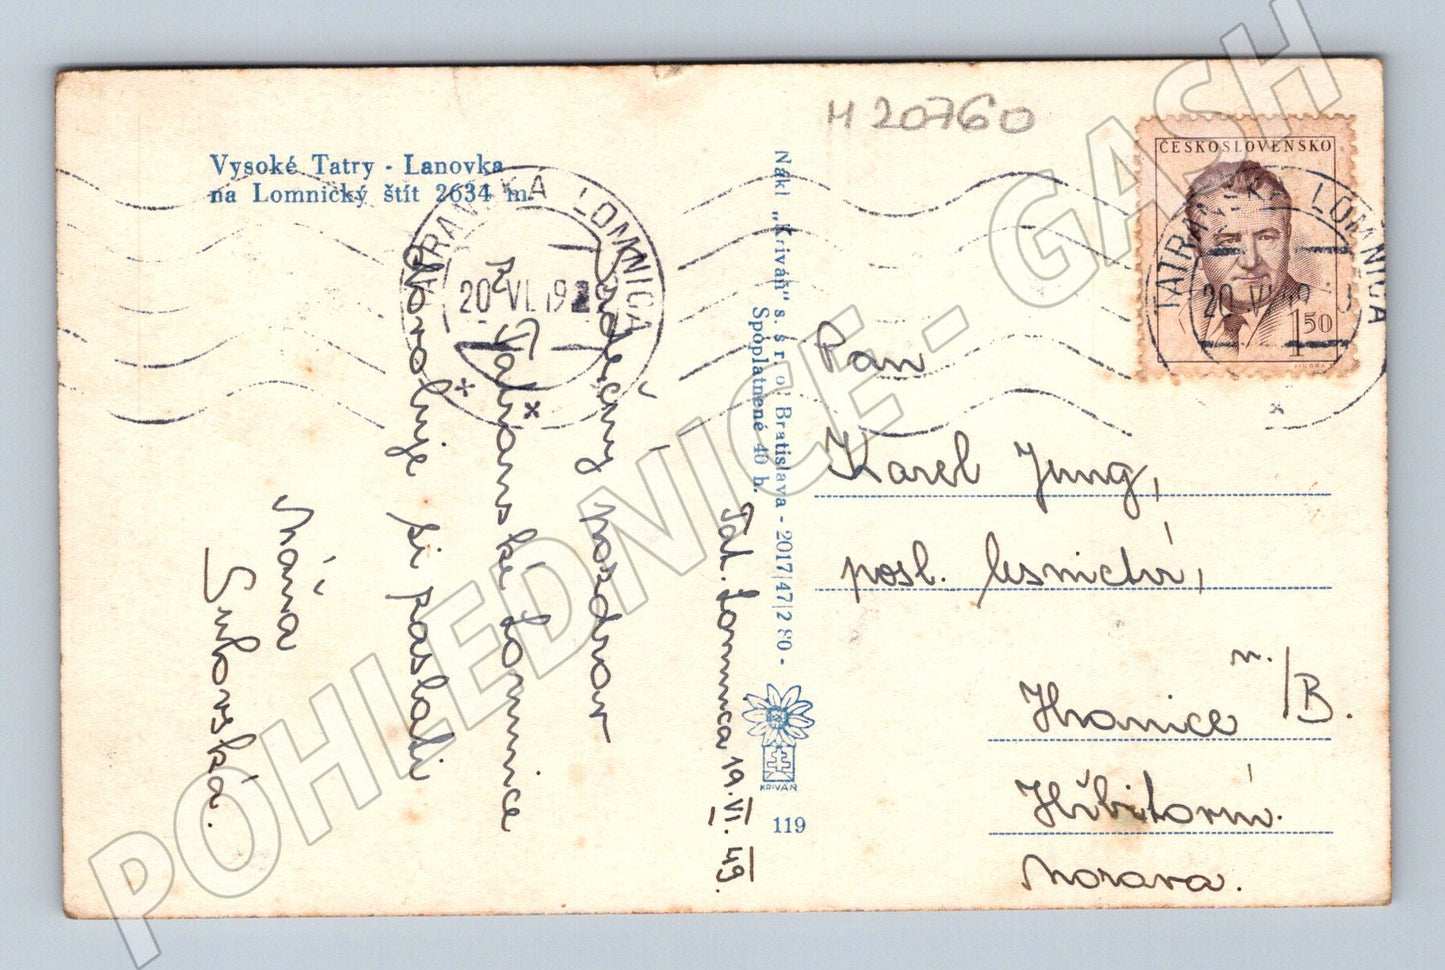 M 20760
Vysoké Tatry - Lanovka
na Lomnický štít 2634 m.
TATRANSKÁ LOMNICA
20. VI. 19
Tat. Lomnica 19. VI. 49.
Srdečný pozdrav
z Tatranské Lomnice
dovoluje si zaslati
Máňa
Nákl. „Kriváň" s. s r. o. Bratislava - 2017/47/2 80 -
Spoplatnené 40 h.
KRIVÁŇ
119
ČESKOSLOVENSKO
1 50
TATRANSKÁ LOMNICA
20. VI. 19
Pan
Karel Jung,
posl. lesnictví,
Hranice n./B.
Hřbitovní.
Morava.
POHLEDNICE - GASH